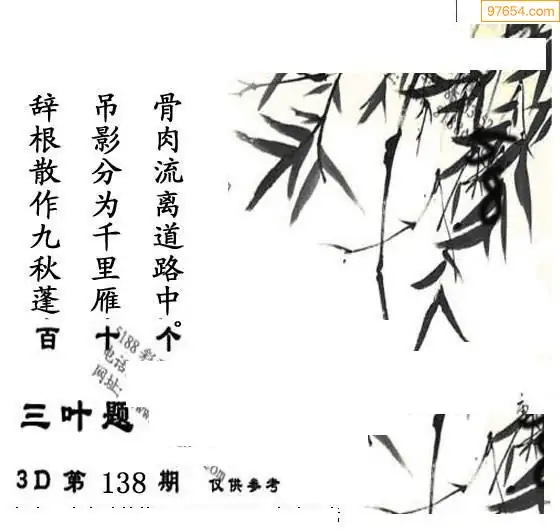 97654.com
骨肉流离道路中。
吊影分为千里雁
辞根散作九秋蓬
百 十 个
5188 彩
电话
网址:
三叶题
3D 第 138 期 仅供参考
.com